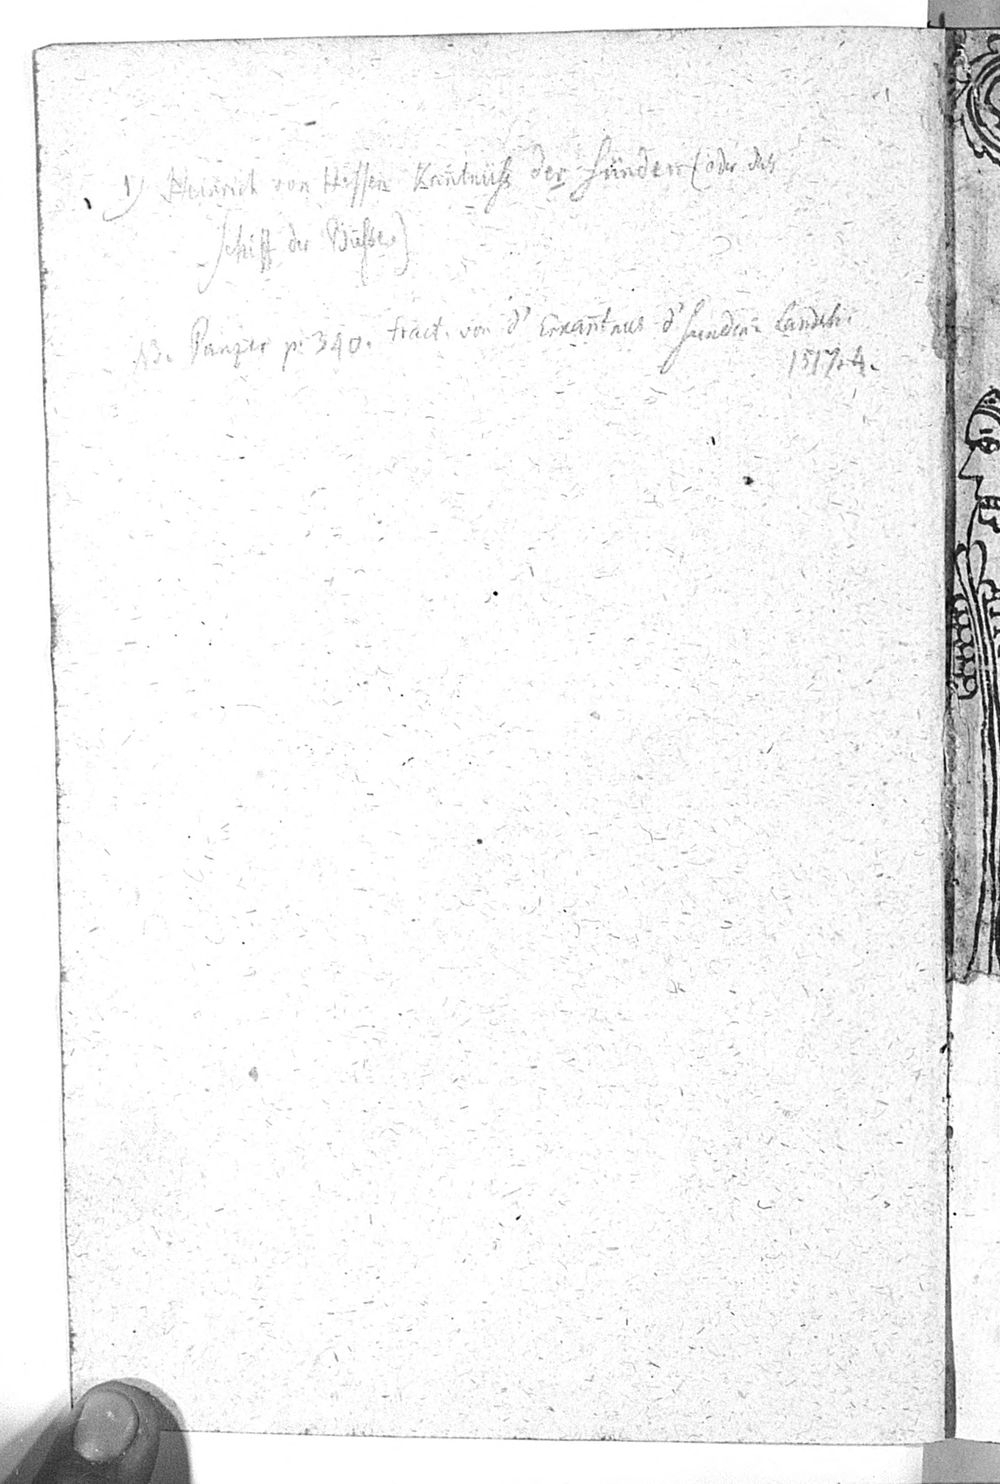 1) Heinrich von Hessen Kantnüß der Sünden (oder das
Schiff der Büßer)
NB. Panzer p. 340. tract. von d' Erkantnus d' Sunden. Landsh.
1517. 4.